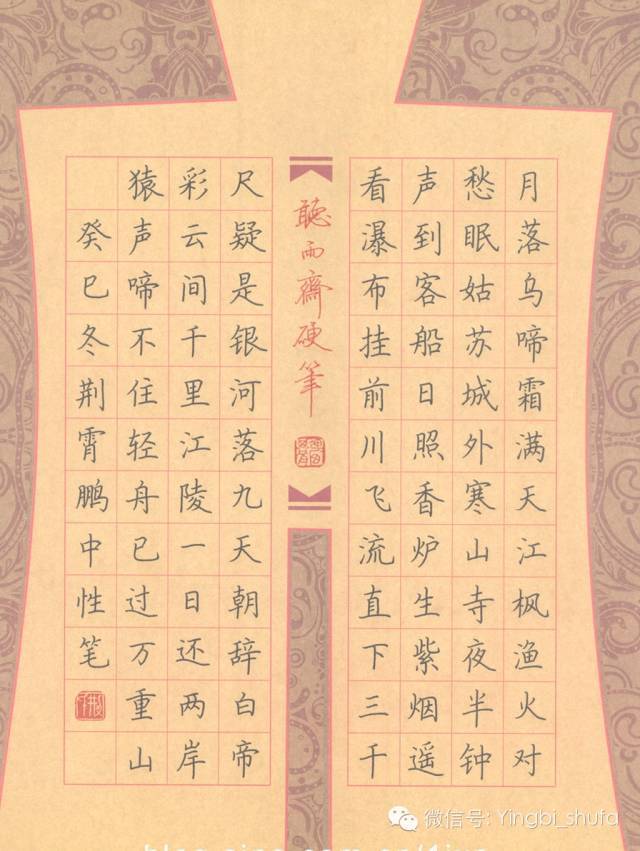 月落乌啼霜满天江枫渔火对
愁眠姑苏城外寒山寺夜半钟
声到客船日照香炉生紫烟遥
看瀑布挂前川飞流直下三千
听雨斋硬笔
尺疑是银河落九天朝辞白帝
彩云间千里江陵一日还两岸
猿声啼不住轻舟已过万重山
癸巳冬荆霄鹏中性笔
微信号: Yingbi_shufa